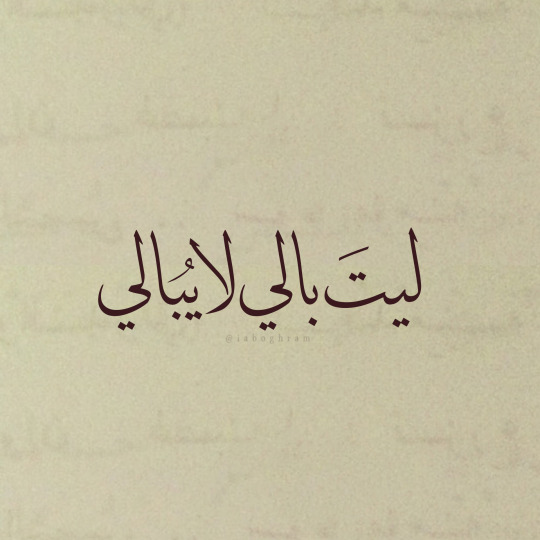 ليتَ بالي لا يُبَالي
@iaboghram